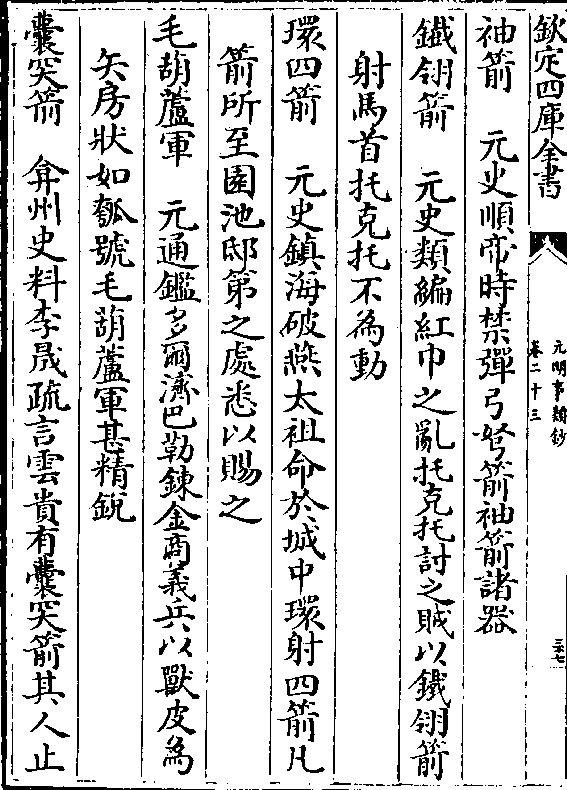 欽定四庫全書
元明事類鈔
卷二十三
三七
袖箭　元史順帝時禁彈弓弩箭袖箭諸器
鐵翎箭　元史類編紅巾之亂托克托討之賊以鐵翎箭
射馬首托克托不為動
環四箭　元史鎮海破燕太祖命於城中環射四箭凡
箭所至園池邸第之處悉以賜之
毛葫蘆軍　元通鑑多爾濟巴勒錬金商義兵以獸皮為
矢房狀如瓠號毛葫蘆軍甚精鋭
囊突箭　弇州史料李晟疏言雲貴有囊突箭其人止